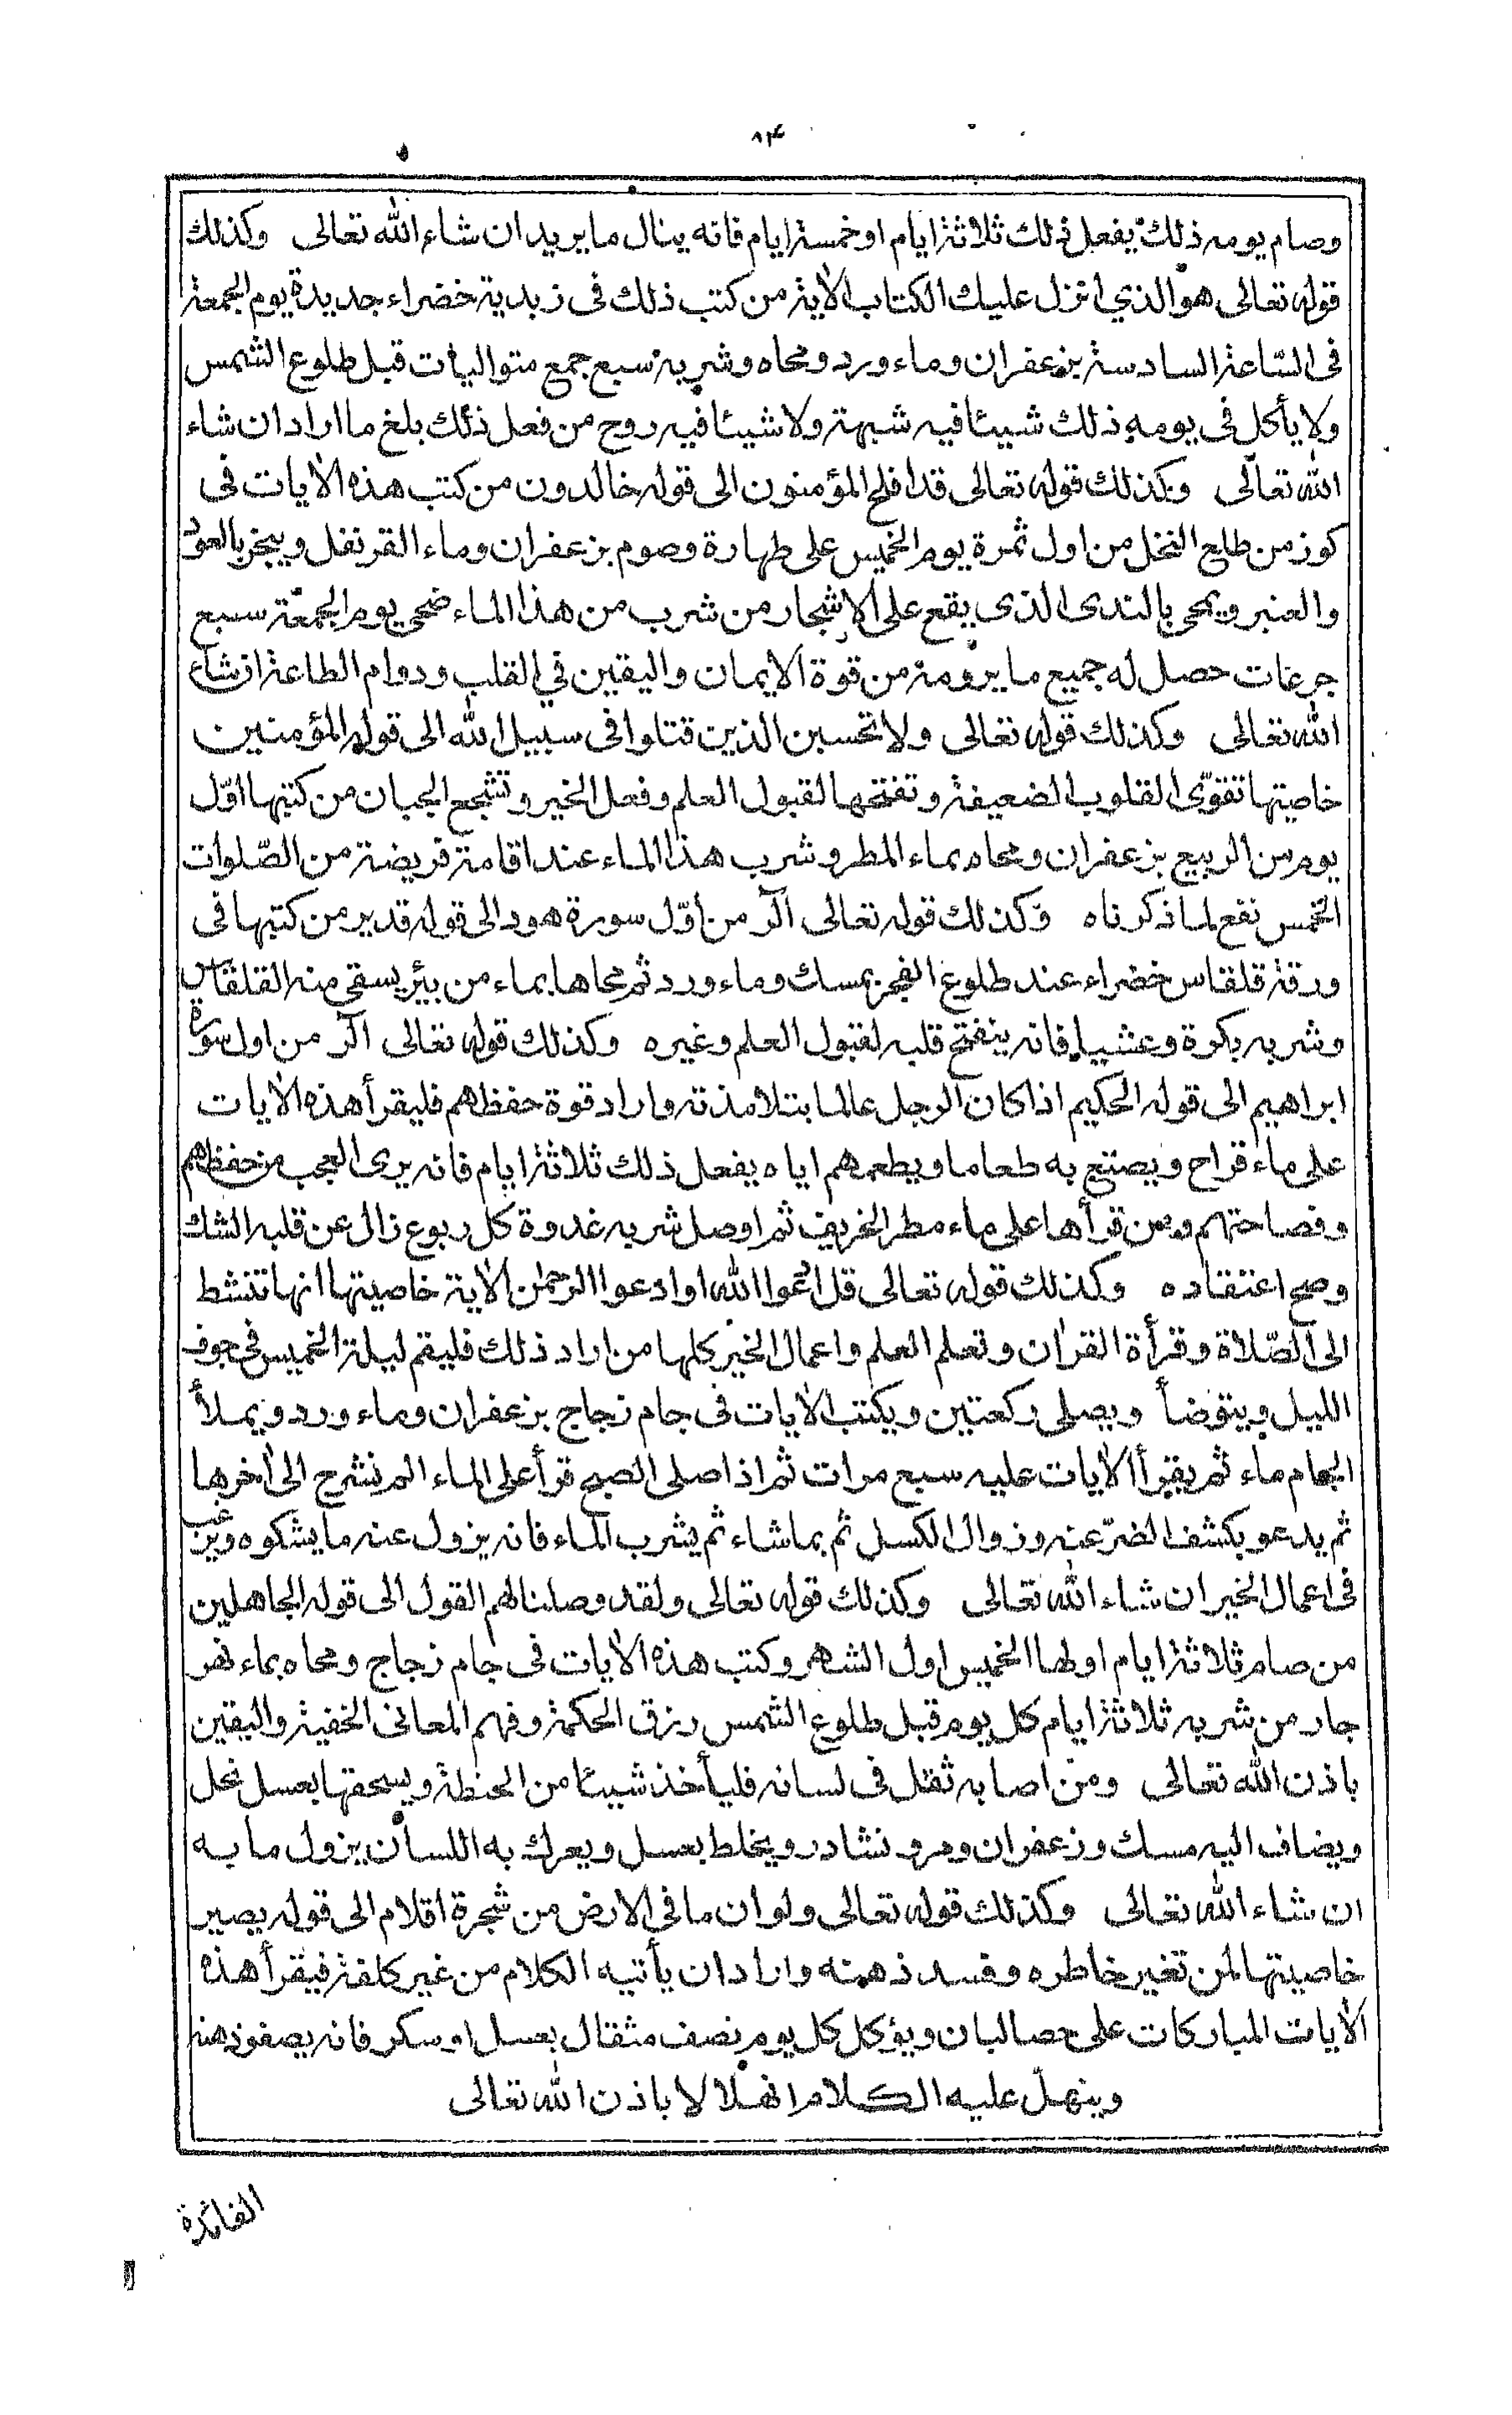 ٨٤
وصام يومه ذلك يفعل ذلك ثلاثة ايام اوخمسة ايام فانه ينال مايريد ان شاء الله تعالى وكذلك
قوله تعالى هو الذي انزل عليك الكتاب الاية من كتب ذلك فى زبدية خضراء جديدة يوم الجمعة
فى السّاعة السادسة بزعفران وماء ورد ومحاه وشربه سبع جمع متواليات قبل طلوع الشمس
ولا يأكل فى يومه ذلك شيئا فيه شبهة ولا شيئا فيه روح من فعل ذلك بلغ ما اراد ان شاء
الله تعالى وكذلك قوله تعالى قد افلح المؤمنون الى قوله خالدون من كتب هذه الايات فى
كوز من طلع النخل من اول ثمرة يوم الخميس على طهارة وصوم بزعفران وماء القرنفل ويبخر بالعود
والعنبر ويمحى بالندى الذى يقع على الاشجار من شرب من هذا الماء ضحى يوم الجمعة سبع
جرعات حصل له جميع ما يرومه من قوة الايمان واليقين في القلب ودوام الطاعة ان شاء
الله تعالى وكذلك قوله تعالى ولا تحسبن الذين قتلوا فى سبيل الله الى قوله المؤمنين
خاصيتها تقوّى القلوب الضعيفة وتفتحها لقبول العلم وفعل الخير وتشجع الجبان من كتبها اوّل
يوم من الربيع بزعفران ومحاه بماء المطر وشرب هذا الماء عند اقامة فريضة من الصّلوات
الخمس نفع لما ذكرناه وكذلك قوله تعالى الٓر من اوّل سورة هود الى قوله قدير من كتبها فى
ورقة قلقاس خضراء عند طلوع الفجر بمسك وماء ورد ثم محاها بماء من بئر يسقى منه القلقاس
وشربه بكرة وعشيا فانه ينفتح قلبه لقبول العلم وغيره وكذلك قوله تعالى الٓر من اول سورة
ابراهيم الى قوله الحكيم اذا كان الرجل عالما بتلامذته واراد قوة حفظهم فليقرأ هذه الايات
على ماء قراح ويصتنع به طعاما ويطعمهم اياه يفعل ذلك ثلاثة ايام فانه يرى العجب من حفظهم
وفصاحتهم ومن قرأها على ماء مطر الخريف ثم اوصل شربه غدوة كل ربوع زال عن قلبه الشك
وصح اعتقاده وكذلك قوله تعالى قل ادعوا الله او ادعوا الرحمن الاية خاصيتها انها تنشط
الى الصّلاة وقرأة القران وتعلم العلم واعمال الخير كلها من اراد ذلك فليقم ليلة الخميس فى جوف
الليل ويتوضأ ويصلى ركعتين ويكتب الايات فى جام زجاج بزعفران وماء ورد ويملأ
الجام ماء ثم يقرأ الايات عليه سبع مرات ثم اذا صلى الصبح قرأ على الماء الم نشرح الى اخرها
ثم يدعو بكشف الضرّ عنه وزوال الكسل ثم بما شاء ثم يشرب الماء فانه يزول عنه ما يشكوه ويرغب
فى اعمال الخير ان شاء الله تعالى وكذلك قوله تعالى ولقد وصلنا لهم القول الى قوله الجاهلين
من صام ثلاثة ايام اولها الخميس اول الشهر وكتب هذه الايات فى جام زجاج ومحاه بماء نهر
جار من شربه ثلاثة ايام كل يوم قبل طلوع الشمس رزق الحكمة وفهم المعانى الخفية واليقين
باذن الله تعالى ومن اصابه ثقل فى لسانه فليأخذ شيئا من الحنطة ويسحقها بعسل نحل
ويضاف اليه مسك وزعفران ومر ونشادر ويخلط بعسل ويعرك به اللسان يزول ما به
ان شاء الله تعالى وكذلك قوله تعالى ولو ان ما فى الارض من شجرة اقلام الى قوله بصير
خاصيتها لمن تغير خاطره وفسد ذهنه واراد ان يأتيه الكلام من غير كلفة فيقرأ هذه
الايات المباركات على حصا لبان ويؤكل كل يوم نصف مثقال بعسل او سكر فانه يصفو ذهنه
وينهلّ عليه الكلام انهلالا باذن الله تعالى
الفائدة